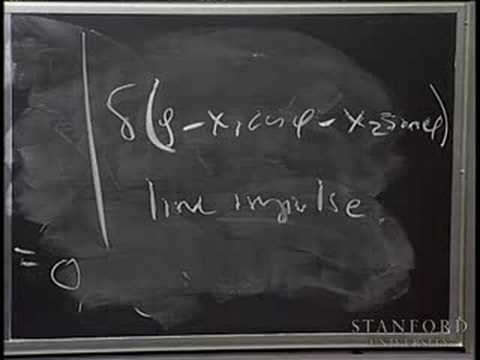 δ(ρ - x₁cosφ - x₂sinφ)
line impulse.
= 0
STANFORD
UNIVERSITY